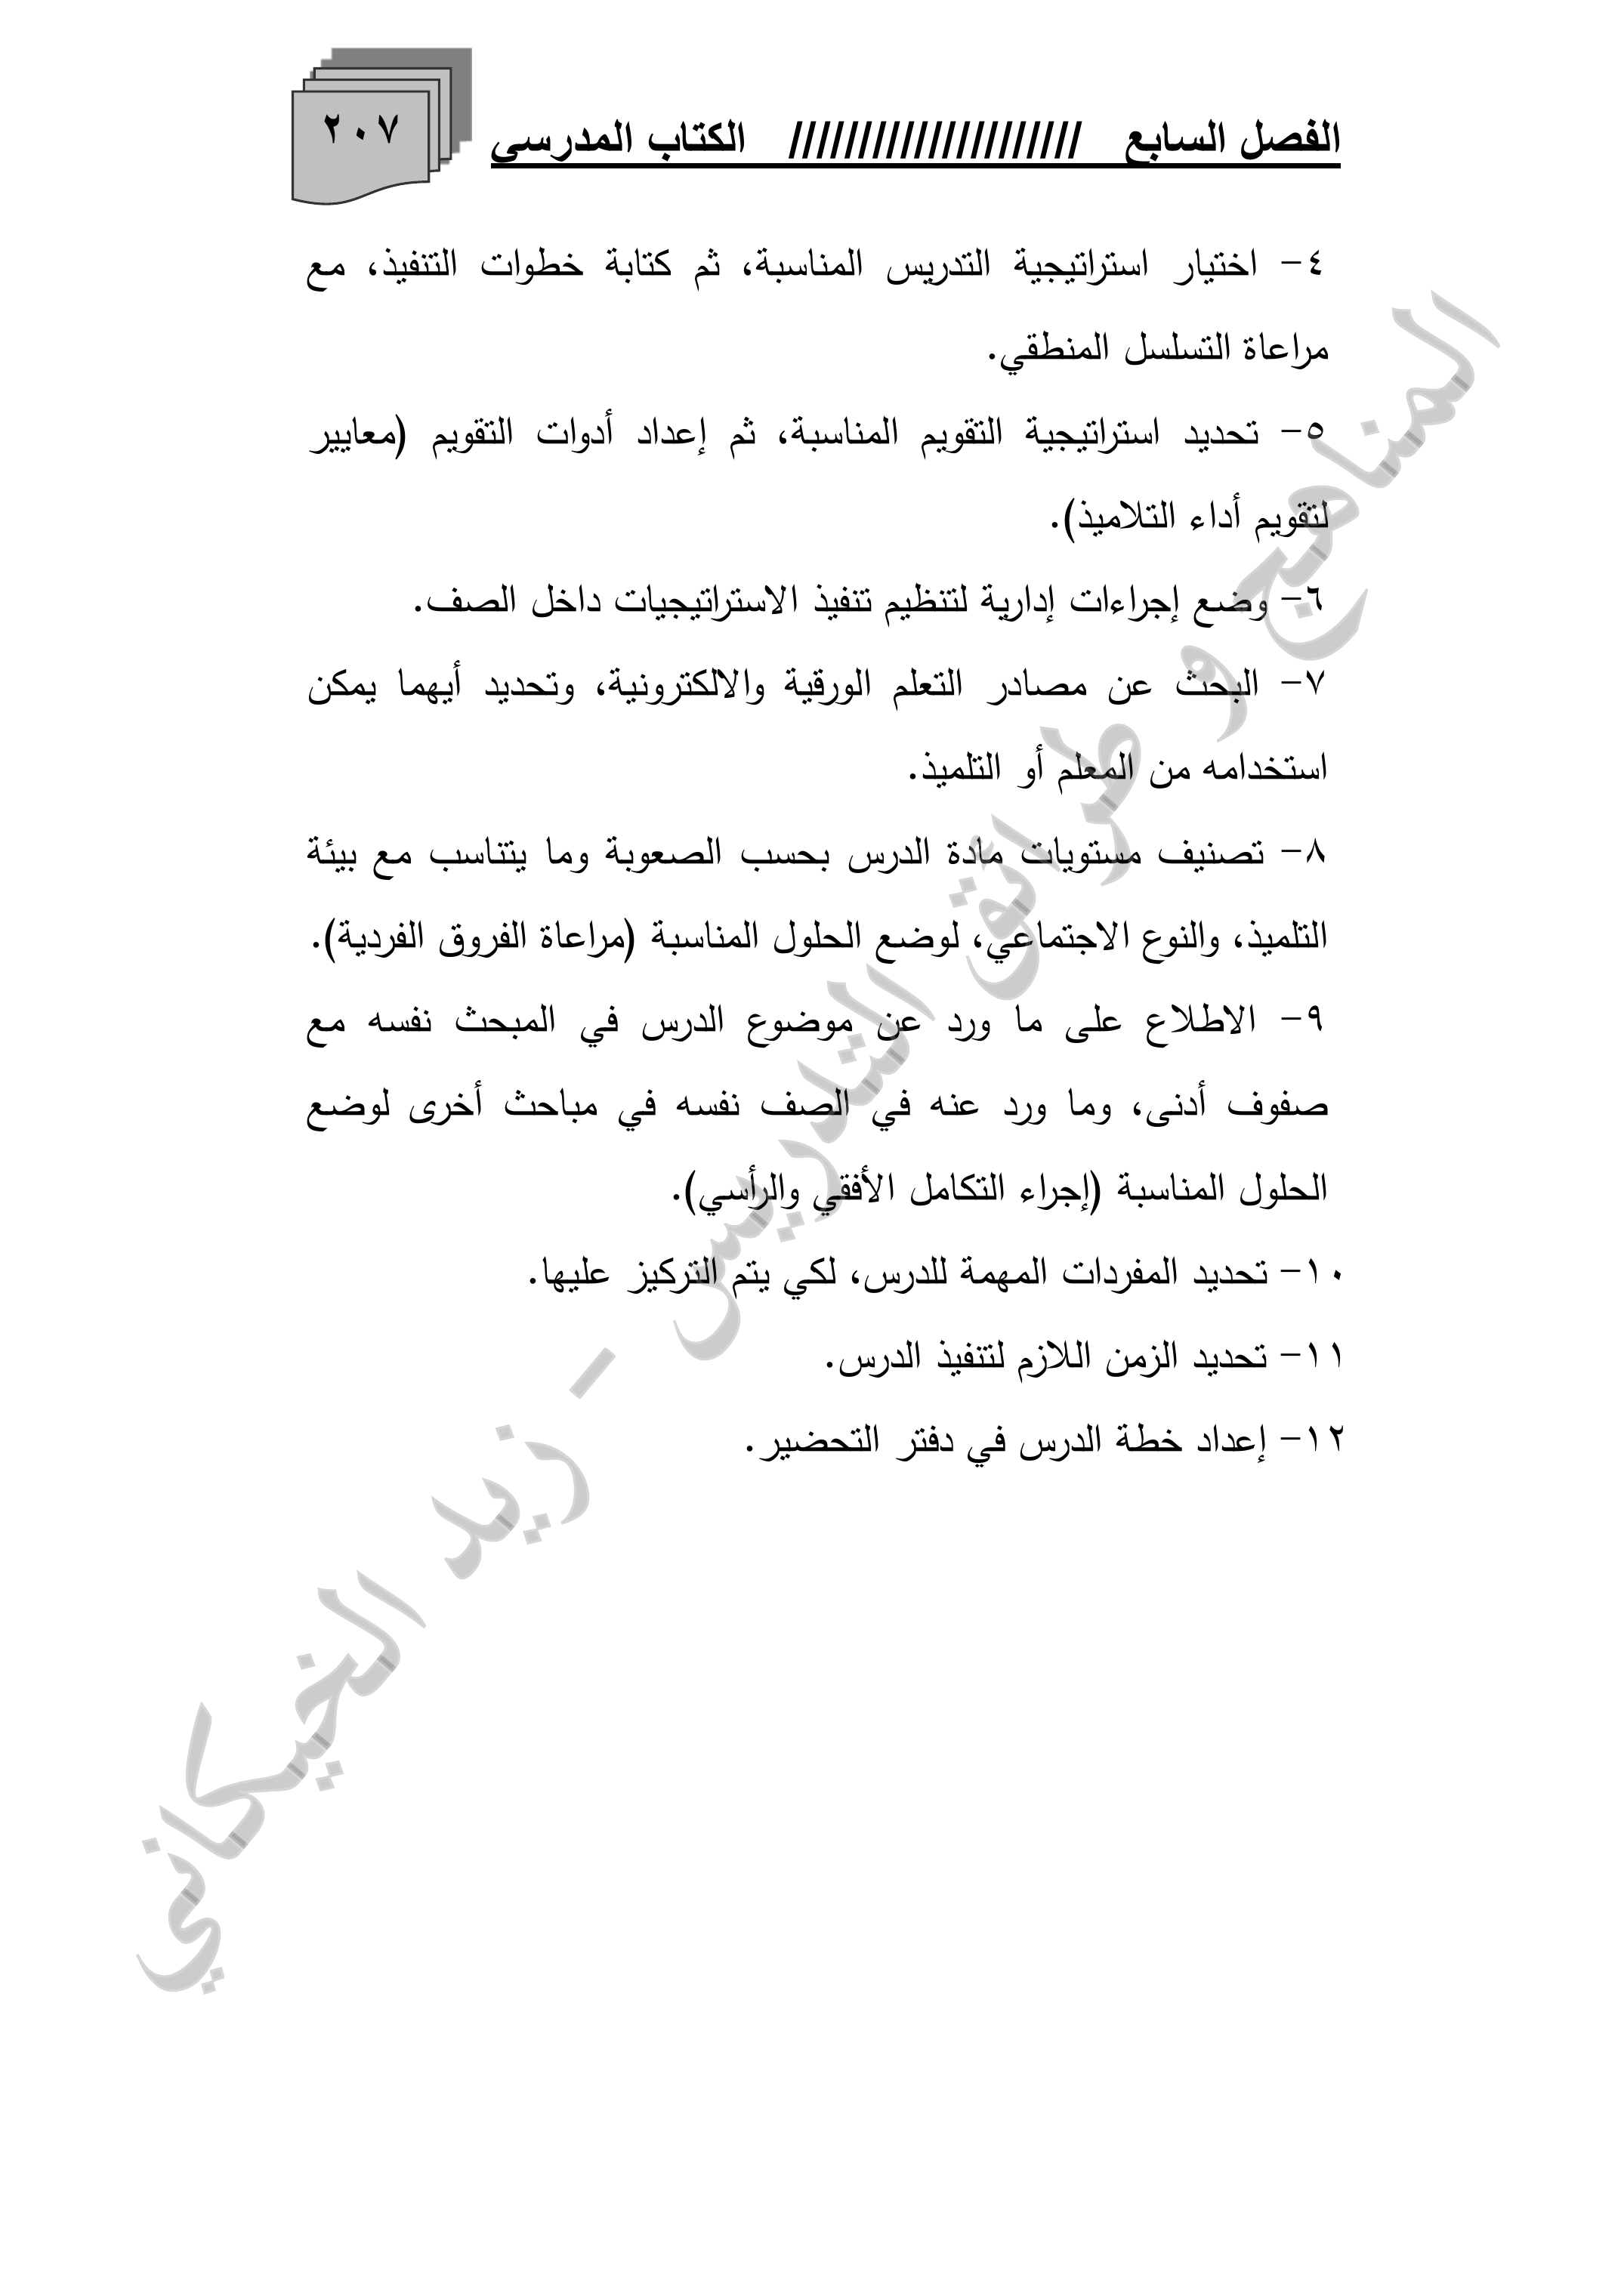 الفصل السابع ///////////////////// الكتاب المدرسي
٢٠٧
٤- اختيار استراتيجية التدريس المناسبة، ثم كتابة خطوات التنفيذ، مع
مراعاة التسلسل المنطقي.
٥- تحديد استراتيجية التقويم المناسبة، ثم إعداد أدوات التقويم (معايير
لتقويم أداء التلاميذ).
٦- وضع إجراءات إدارية لتنظيم تنفيذ الاستراتيجيات داخل الصف.
٧- البحث عن مصادر التعلم الورقية والالكترونية، وتحديد أيهما يمكن
استخدامه من المعلم أو التلميذ.
٨- تصنيف مستويات مادة الدرس بحسب الصعوبة وما يتناسب مع بيئة
التلميذ، والنوع الاجتماعي، لوضع الحلول المناسبة (مراعاة الفروق الفردية).
٩- الاطلاع على ما ورد عن موضوع الدرس في المبحث نفسه مع
صفوف أدنى، وما ورد عنه في الصف نفسه في مباحث أخرى لوضع
الحلول المناسبة (إجراء التكامل الأفقي والرأسي).
١٠- تحديد المفردات المهمة للدرس، لكي يتم التركيز عليها.
١١- تحديد الزمن اللازم لتنفيذ الدرس.
١٢- إعداد خطة الدرس في دفتر التحضير.
المناهج وطرائق التدريس - زيد الخيكاني